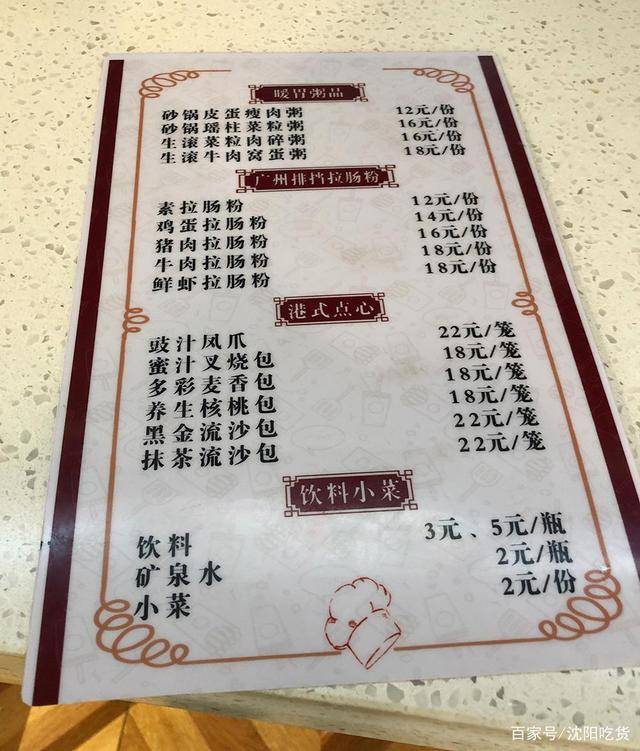 暖胃粥品
砂锅皮蛋瘦肉粥 12元/份
砂锅瑶柱菜粒粥 16元/份
生滚菜粒肉碎粥 16元/份
生滚牛肉窝蛋粥 18元/份
广州排挡拉肠粉
素拉肠粉 12元/份
鸡蛋拉肠粉 14元/份
猪肉拉肠粉 16元/份
牛肉拉肠粉 18元/份
鲜虾拉肠粉 18元/份
港式点心
豉汁凤爪 22元/笼
蜜汁叉烧包 18元/笼
多彩麦香包 18元/笼
养生核桃包 18元/笼
黑金流沙包 22元/笼
抹茶流沙包 22元/笼
饮料小菜
饮料 3元、5元/瓶
矿泉水 2元/瓶
小菜 2元/份
百家号/沈阳吃货